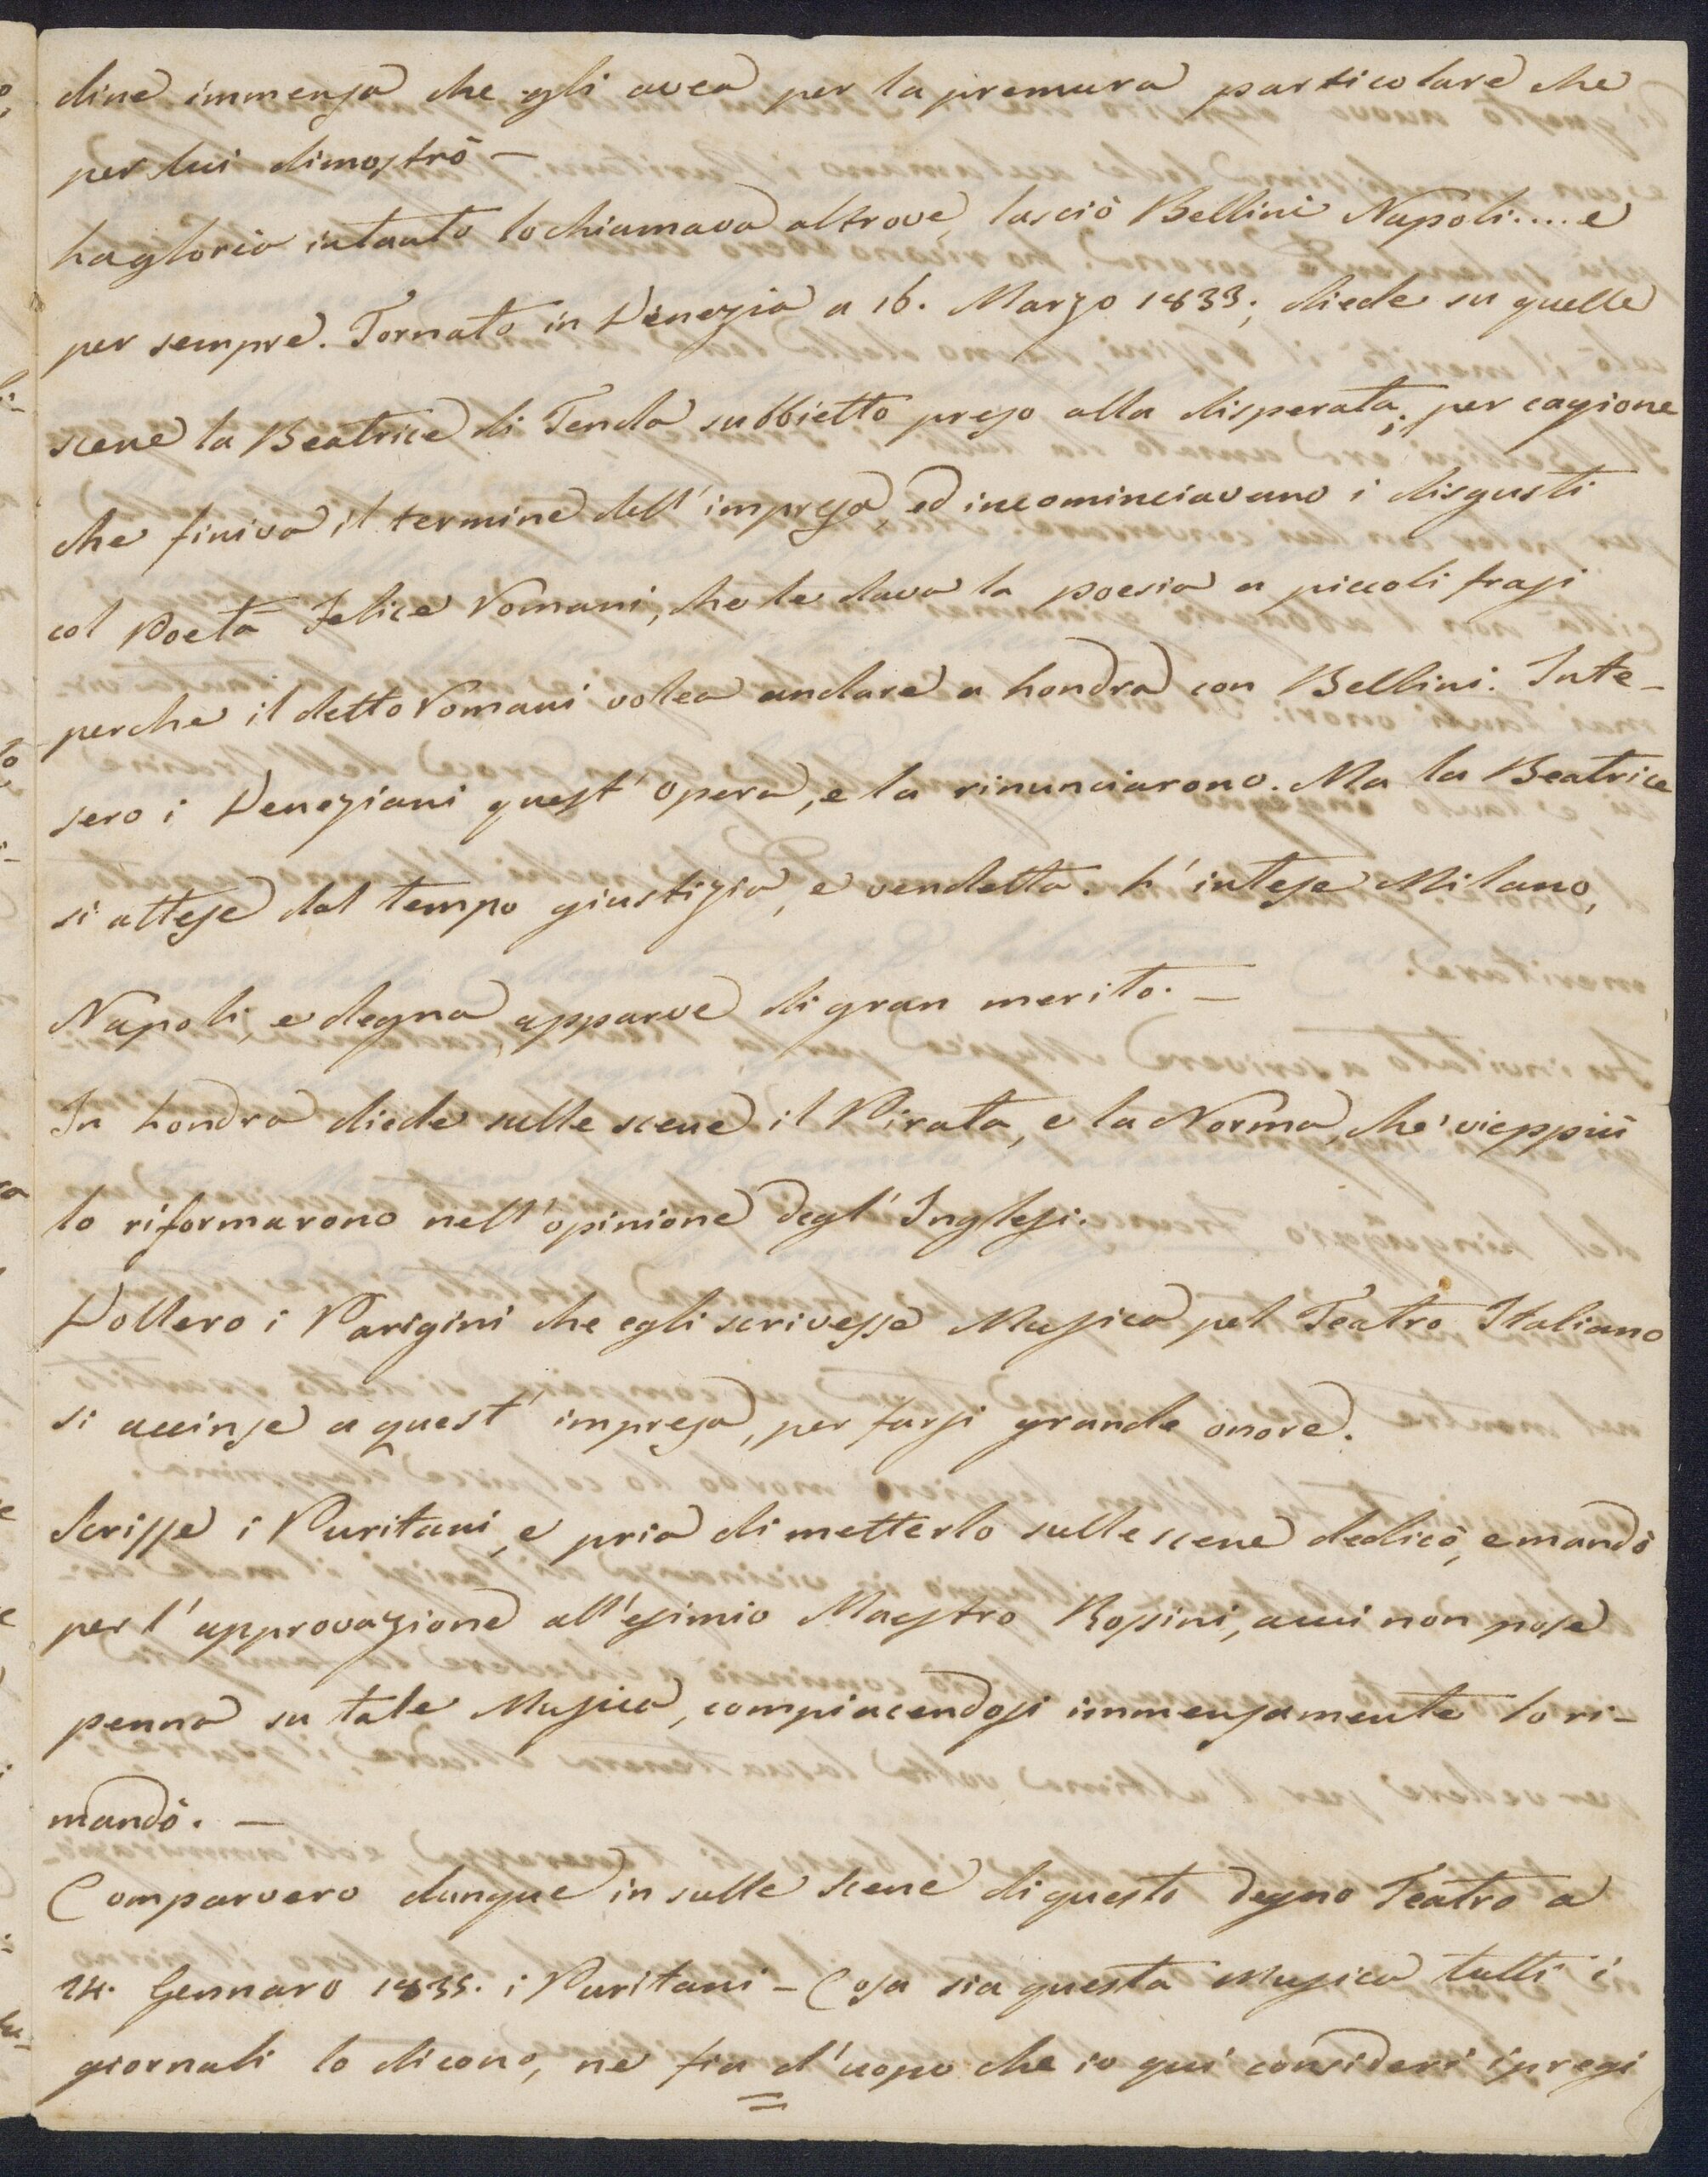 dine immensa che egli avea per la premura particolare che
per lui dimostrò –
La gloria intanto lo chiamava altrove, lasciò Bellini Napoli.... e
per sempre. Tornato in Venezia a 16. Marzo 1833; diede su quelle
scene la Beatrice di Tenda subbietto preso alla disperata; per cagione
che finiva il termine dell'impresa, ed incominciavano i disgusti
col Poeta Felice Romani, che le dava la poesia a piccoli frasi
perche il detto Romani volea andare a Londra con Bellini. Inte-
sero i Veneziani quest'opera, e la rinunciarono. Ma la Beatrice
si attese dal tempo giustizia, e vendetta. L'intese Milano,
Napoli, e degna apparve di gran merito. –
In Londra diede sulle scene il Pirata, e la Norma, che vieppiù
lo riformarono nell'opinione degl'Inglesi.
Vollero i Parigini che egli scrivesse Musica pel Teatro Italiano
si accinse a quest'impresa, per farsi grande onore.
Scrisse i Puritani, e pria di metterlo sulle scene dedicò, e mandò
per l'approvazione all'esimio Maestro Rossini, a cui non pose
penna su tale Musica, compiacendosi immensamente lo ri-
mandò. –
Comparvero dunque in sulle scene di questo degno Teatro a
24. Gennaro 1835. i Puritani – Cosa sia questa Musica tutti i
giornali lo dicono, ne fia d'uopo che io qui consideri i pregi